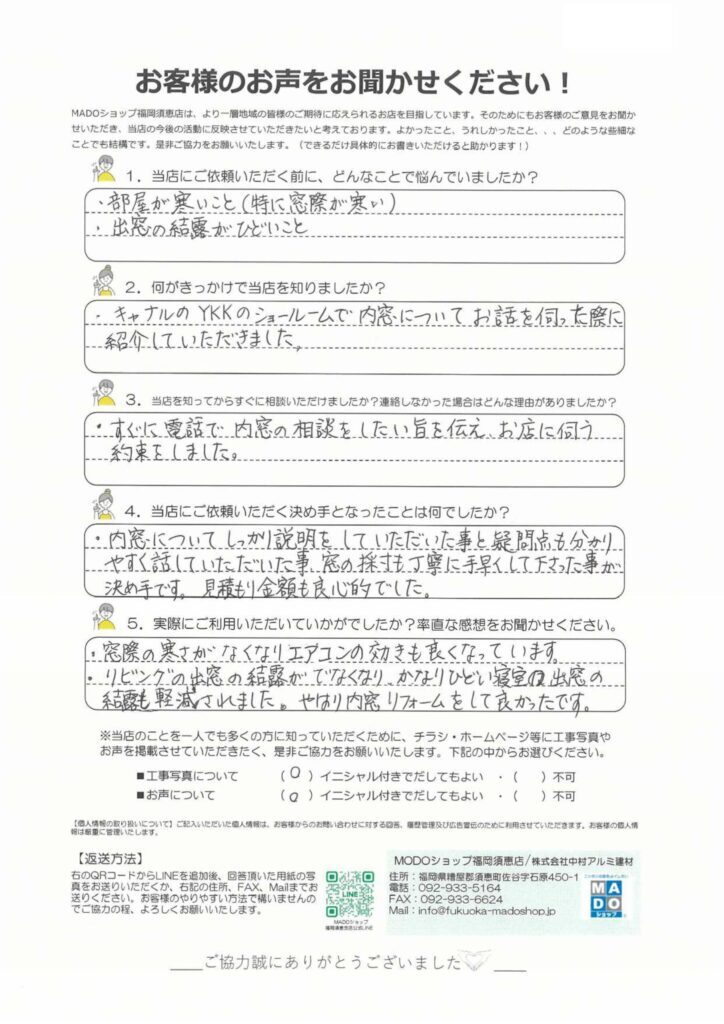 お客様のお声をお聞かせください！
MADOショップ福岡須恵店は、より一層地域の皆様のご期待に応えられるお店を目指しています。そのためにもお客様のご意見をお聞か
せいただき、当店の今後の活動に反映させていただきたいと考えております。よかったこと、うれしかったこと、、、どのような些細な
ことでも結構です。是非ご協力をお願いいたします。（できるだけ具体的にお書きいただけると助かります！）
1．当店にご依頼いただく前に、どんなことで悩んでいましたか？
・部屋が寒いこと（特に窓際が寒い）
・出窓の結露がひどいこと
2．何がきっかけで当店を知りましたか？
・キャナルのYKKのショールームで内窓についてお話を伺った際に
紹介していただきました。
3．当店を知ってからすぐに相談いただけましたか？連絡しなかった場合はどんな理由がありましたか？
・すぐに電話で内窓の相談をしたい旨を伝え、お店に伺う
約束をしました。
4．当店にご依頼いただく決め手となったことは何でしたか？
・内窓についてしっかり説明をしていただいた事と疑問点も分かり
やすく話していただいた事、窓の採寸も丁寧に手早くして下さった事が
決め手です。見積もり金額も良心的でした。
5．実際にご利用いただいていかがでしたか？率直な感想をお聞かせください。
・窓際の寒さがなくなりエアコンの効きも良くなっています。
・リビングの出窓の結露がでなくなり、かなりひどい寝室の出窓の
結露も軽減されました。やはり内窓リフォームをして良かったです。
※当店のことを一人でも多くの方に知っていただくために、チラシ・ホームページ等に工事写真や
お声を掲載させていただきたく、是非ご協力をお願いいたします。下記の中からお選びください。
■工事写真について （○）イニシャル付きでだしてもよい ・（ ）不可
■お声について （○）イニシャル付きでだしてもよい ・（ ）不可
【個人情報の取り扱いについて】ご記入いただいた個人情報は、お客様からのお問い合わせに対する回答、履歴管理及び広告宣伝のために利用させていただきます。お客様の個人情
報は厳重に管理いたします。
【返送方法】
右のQRコードからLINEを追加後、回答頂いた用紙の写
真をお送りいただくか、右記の住所、FAX、Mailまでお
送りください。お客様のやりやすい方法で構いませんの
でご協力の程、よろしくお願いいたします。
MADOショップ
福岡須恵店公式LINE
MODOショップ福岡須恵店/株式会社中村アルミ建材
住所：福岡県糟屋郡須恵町佐谷字石原450-1
電話：092-933-5164
FAX：092-933-6624
Mail：info@fukuoka-madoshop.jp
MADO
ショップ
ご協力誠にありがとうございました